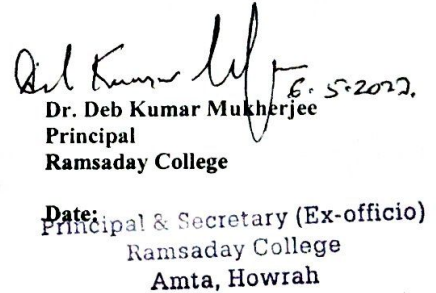 6.5.2022.
Dr. Deb Kumar Mukherjee
Principal
Ramsaday College
Date:
Principal & Secretary (Ex-officio)
Ramsaday College
Amta, Howrah